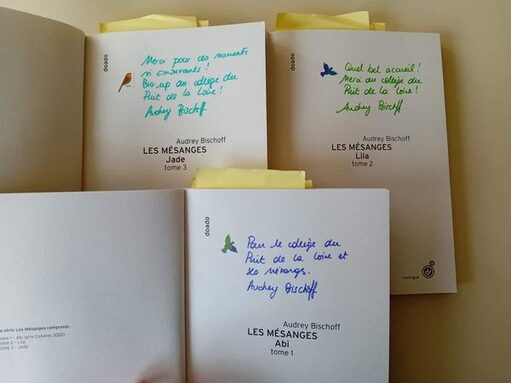 doado
Merci pour ces moments
si émouvants !
Big up au collège du
Puit de la Loire !
Audrey Bischoff
Audrey Bischoff
LES MÉSANGES
Jade
tome 3
doado
Quel bel accueil !
Merci au collège du
Puit de la Loire !
Audrey Bischoff
Audrey Bischoff
LES MÉSANGES
Lila
tome 2
rouergue
doado
Pour le collège du
Puit de la Loire et
ses mésanges.
Audrey Bischoff
Audrey Bischoff
LES MÉSANGES
Abi
tome 1
a série Les Mésanges comprend :
tome 1 - Abi (prix Cendres 2022)
tome 2 - Lila
tome 3 - Jade